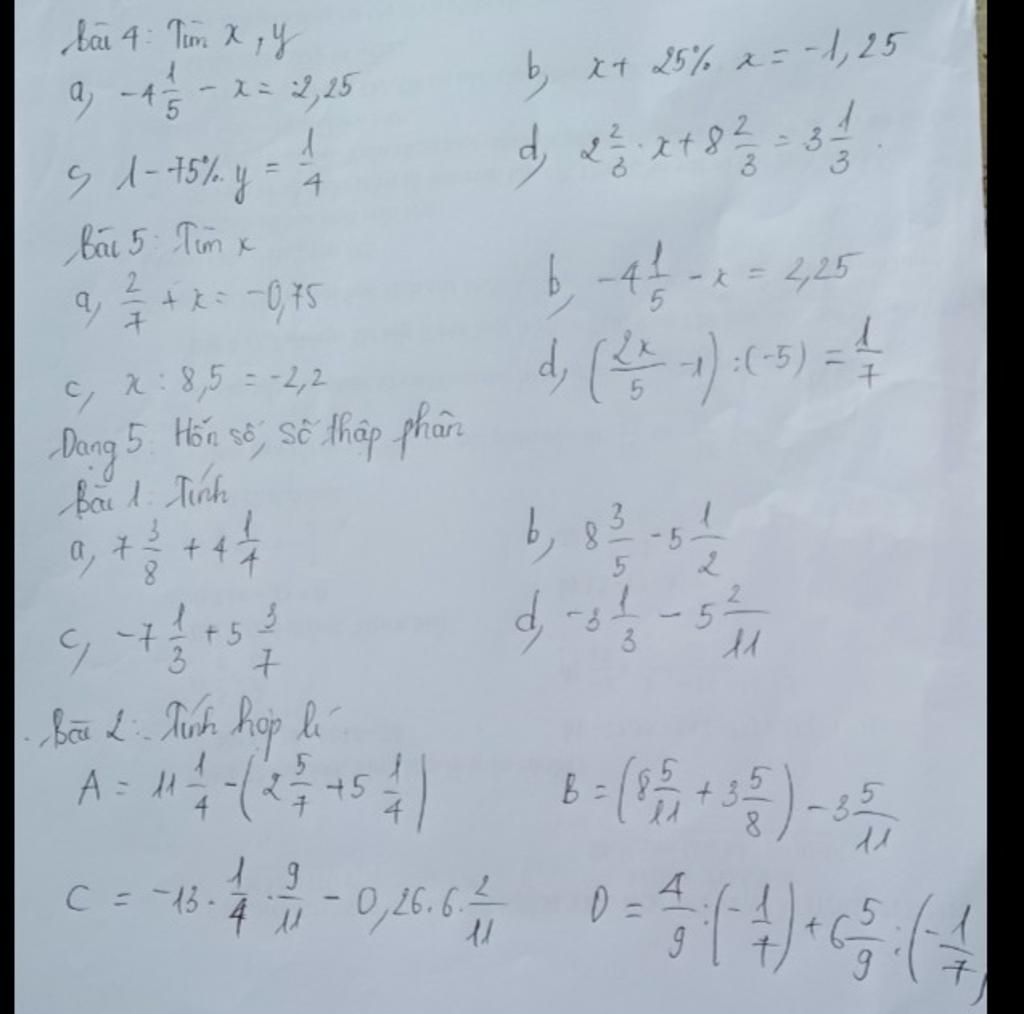 Bài 4: Tìm x, y
a, -4 1/5 - x = :2,25
b, x + 25% x = -1,25
c, 1 - 75% y = 1/4
d, 2 2/3 . x + 8 2/3 = 3 1/3.
Bài 5: Tìm x
a, 2/7 + x = -0,75
b, -4 1/5 - x = 2,25
c, x : 8,5 = -2,2
d, (2x/5 - 1) : (-5) = 1/7
Dạng 5: Hỗn số, Số thập phân
Bài 1: Tính
a, 7 3/8 + 4 1/4
b, 8 3/5 - 5 1/2
c, -7 1/3 + 5 3/7
d, -3 1/3 - 5 2/11
Bài 2: Tính hợp lí
A = 11 1/4 - (2 5/7 + 5 1/4)
B = (8 5/11 + 3 5/8) - 3 5/11
C = -13 . 1/4 . 9/11 - 0,26 . 6 . 2/11
D = 4/9 : (-1/7) + 6 5/9 : (-1/7)